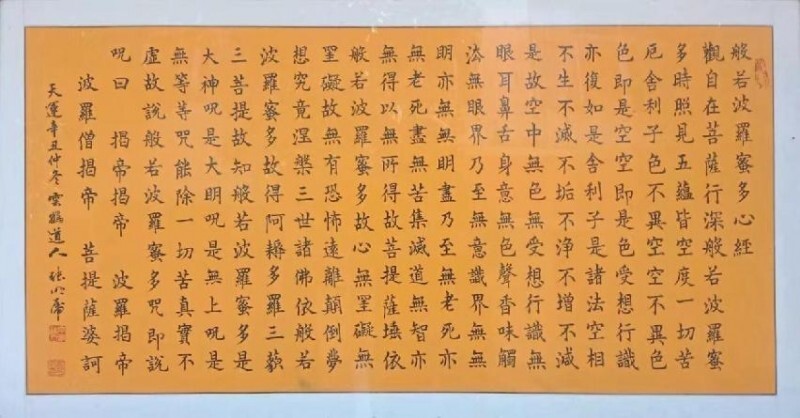 般若波羅蜜多心經
觀自在菩薩行深般若波羅蜜
多時照見五蘊皆空度一切苦
厄舍利子色不異空空不異色
色即是空空即是色受想行識
亦復如是舍利子是諸法空相
不生不滅不垢不淨不增不減
是故空中無色無受想行識無
眼耳鼻舌身意無色聲香味觸
法無眼界乃至無意識界無無
明亦無無明盡乃至無老死亦
無老死盡無苦集滅道無智亦
無得以無所得故菩提薩埵依
般若波羅蜜多故心無罣礙無
罣礙故無有恐怖遠離顛倒夢
想究竟涅槃三世諸佛依般若
波羅蜜多故得阿耨多羅三藐
三菩提故知般若波羅蜜多是
大神呪是大明呪是無上呪是
無等等咒能除一切苦真實不
虛故說般若波羅蜜多咒即說
呪曰 揭帝揭帝 波羅揭帝
波羅僧揭帝 菩提薩婆訶
天運辛丑仲冬雲鶴道人張